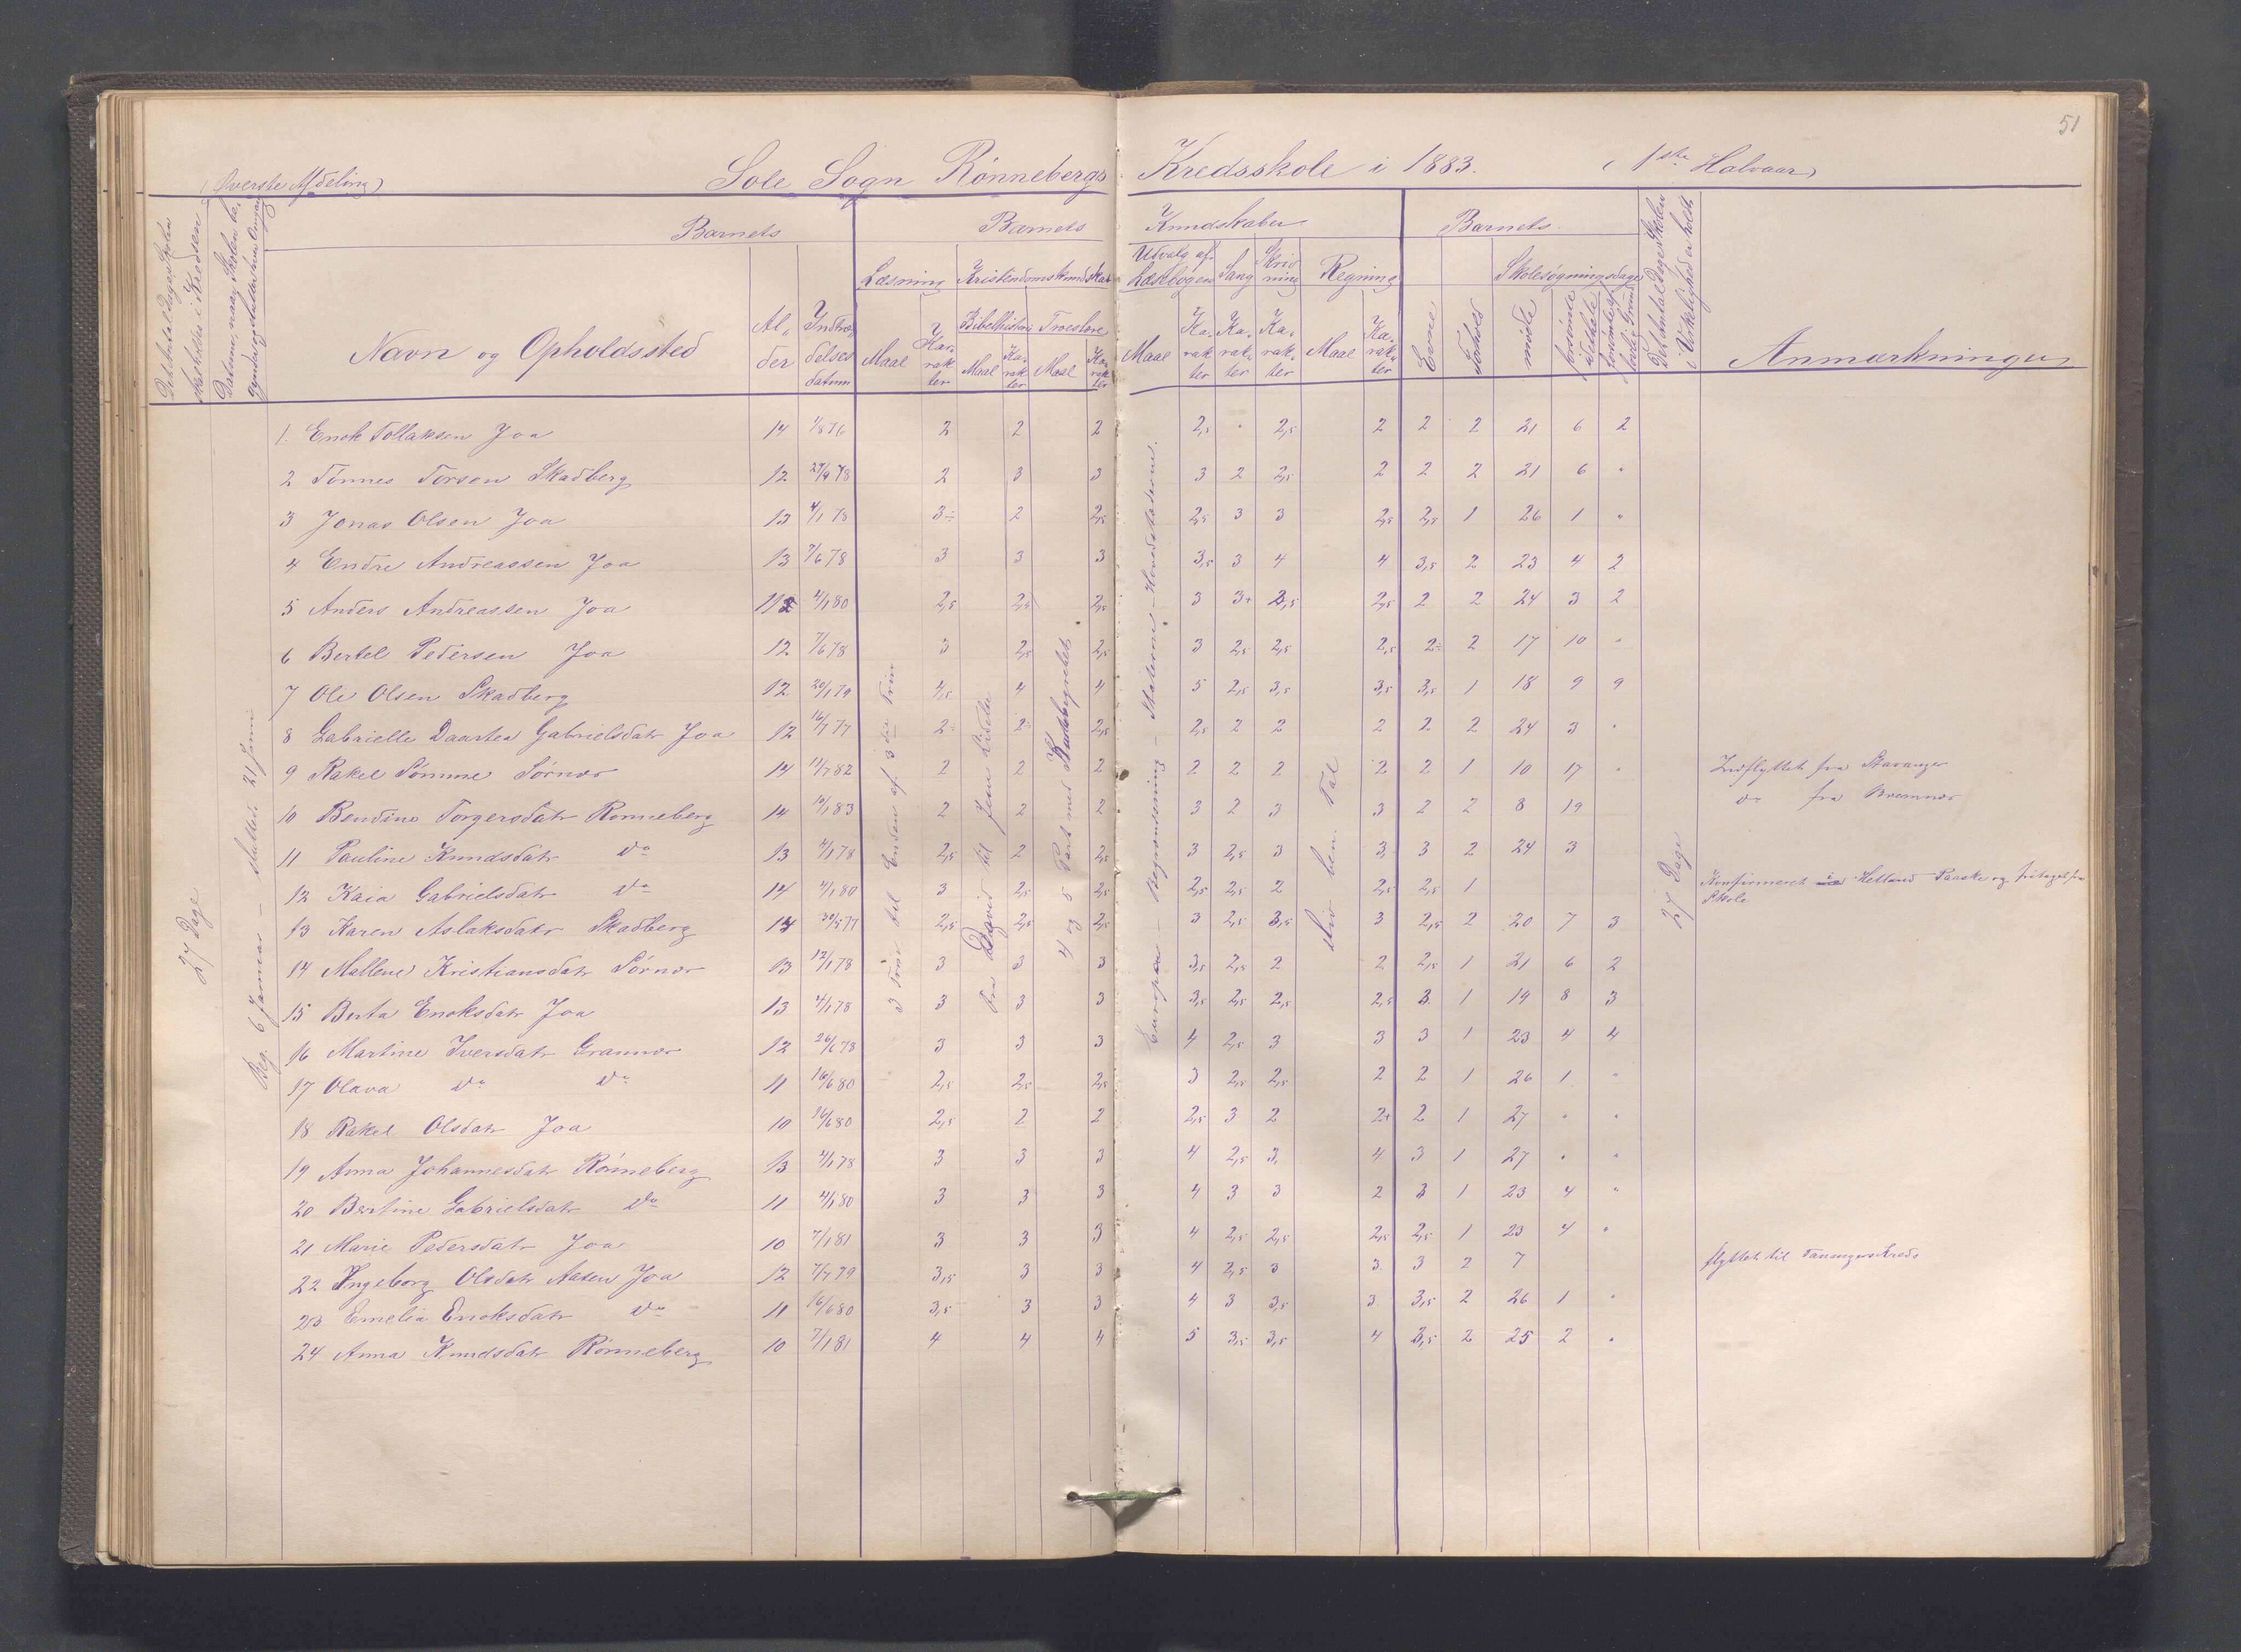 51
(Øverste Afdeling) Sole Sogn Rønnebergs Kredsskole i 1883. (1ste Halvaar)
Det Antal Dage Skolen skal holdes i Kredsen
Datum, naar Skolen begynder og slutter hver Omgang
Barnets
Barnets Kundskaber
Barnets
Navn og Opholdssted
Alder
Indtrædelsesdatum
Læsning
Maal
Karakter
Kristendomskundskab
Bibelhistorie
Maal
Karakter
Troeslære
Maal
Karakter
Udvalg af Læsebogen
Maal
Karakter
Sang
Karakter
Skrivning
Karakter
Regning
Maal
Karakter
Evne
Forhold
Skolesøgningsdage
mødte
forsømte i det hele
forsømte af lovl. Grund
Det Antal Dage Skolen i Virkelighed er holdt
Anmærkninger
27 Dage
Beg. 6 Januar – sluttet 21 Juni
3 Trin til Enden af 3die Trin
Fra David til Jesu Lidelse
4 og 5 Part med
Europa – Begrændsning – Staterne – Hovedstæderne.
ben. Tal
27 Dage
1. Enok Tollaksen Joa 14 1/8 76 2 2 2 2,5 " 2,5 2 2 2 21 6 2
2 Tønnes Torsen Skadberg 12 24/9 78 2 3 3 3 2 2,5 2 2 2 21 6 "
3 Jonas Olsen Joa 13 4/1 78 3÷ 2 2,5 2,5 3 3 2,5 2,5 1 26 1 "
4 Endre Andreassen Joa 13 7/6 78 3 3 3 3,5 3 4 4 3,5 2 23 4 2
5 Anders Andreassen Joa 11 4/1 80 2,5 2,5 2,5 3 3+ 2,5 2,5 2 2 24 3 2
6 Bertel Pedersen Joa 12 7/6 78 3 2,5 2,5 3 2,5 2,5 2,5 2÷ 2 17 10 "
7 Ole Olsen Skadberg 12 20/1 79 4,5 4 4 5 2,5 3,5 3,5 3,5 1 18 9 9
8 Gabrielle Daartea Gabrielsdatr Joa 12 16/7 77 2÷ 2÷ 2,5 2,5 2 2 2 2 2 24 3 "
9 Rakel Sømme Sørnes 14 11/7 82 2 2 2 2 2 2 2 2 1 10 17 " Indflyttet fra Stavanger
10 Bendine Torgersdatr Rønneberg 14 10/1 83 2 2 2 3 2 3 3 2 2 8 19 do fra
11 Pauline Knudsdatr do 13 4/1 78 2,5 2 2,5 3 2,5 3 3, 3 2 24 3
12 Kaia Gabrielsdatr do 14 4/1 80 3 2,5 2,5 2,5 2,5 2 2,5 2,5 1 Konfirmeret i Hetland Paaske og fritaget fra
Skole
13 Karen Aslaksdatr Skadberg 14 30/5 77 2,5 2,5 2,5 3 2,5 3,5 3 2,5 2 20 7 3
14 Mallene Kristiansdatr Sørnes 13 12/1 78 3 3 3 3,5 2,5 2 2 2,5 1 21 6 2
15 Berta Enoksdatr Joa 13 4/1 78 3 3 3 3,5 2,5 2,5 2,5 3 1 19 8 3
16 Martine Iversdatr Grannes 12 26/6 78 3 3 3 4 2,5 3 3 3 1 23 4 4
17 Olava do do 11 16/6 80 2,5 2,5 2,5 3 2,5 2,5 2 2 1 26 1 "
18 Rakel Olsdatr Joa 10 16/6 80 2,5 2 2 2,5 3 2 2+ 2 1 27 " "
19 Anna Johannesdatr Rønneberg 13 4/1 78 3 3 3 4 2,5 3, 4 3 1 27 " "
20 Bertine Gabrielsdatr do 11 4/1 80 3 3 3 4 3 3 2 3 1 23 4 "
21 Marie Pedersdatr Joa 10 7/1 81 3 3 3 4 2,5 2,5 2,5 2,5 1 23 4 "
22 Ingeborg Olsdatr Aasen Joa 12 7/7 79 3,5 3 3 4 2,5 3 3 3 2 7 flyttet til Tanangers Kreds
23 Emelia Enoksdatr do 11 16/6 80 3,5 3 3 4 3 3,5 3 3,5 2 26 1 "
24 Anna Knudsdatr Rønneberg 10 7/1 81 4 4 4 5 3,5 3,5 4 3,5 2 25 2 "